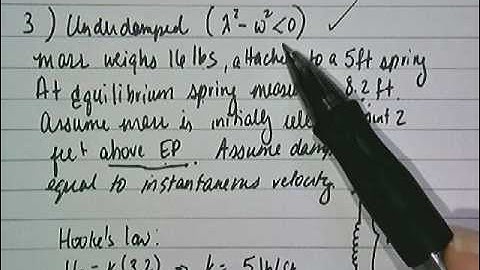 3) Underdamped (λ²-ω²<0) ✓
mass weighs 16 lbs, attached to a 5ft spring
At equilibrium spring measu 8.2 ft.
Assume mass is initially rele point 2
feet above EP. Assume damp
equal to instantaneous velocity.
Hooke's law:
= k(3.2) k = 5 lb/ft